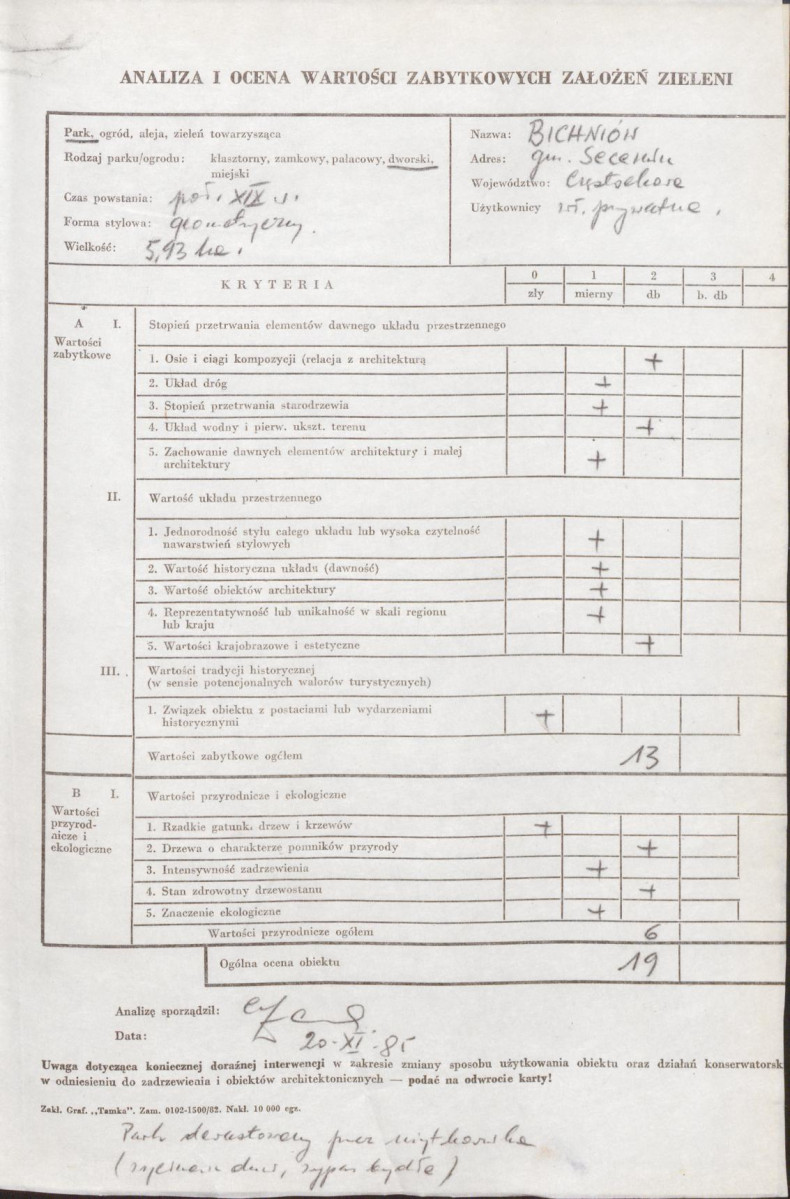 ANALIZA I OCENA WARTOŚCI ZABYTKOWYCH ZAŁOŻEŃ ZIELENI
Park, ogród, aleja, zieleń towarzysząca
Rodzaj parku/ogrodu: klasztorny, zamkowy, pałacowy, dworski,
miejski
Czas powstania: poł. XIX w.
Forma stylowa: geometryczny.
Wielkość: 5,93 ha.
Nazwa: BICHNIÓW
Adres: gm. Secemin
Województwo: Częstochowa
Użytkownicy wł. prywatna.
KRYTERIA
0 1 2 3 4
zły mierny db b. db
A I. Stopień przetrwania elementów dawnego układu przestrzennego
Wartości
zabytkowe
1. Osie i ciągi kompozycji (relacja z architekturą +
2. Układ dróg +
3. Stopień przetrwania starodrzewia +
4. Układ wodny i pierw. ukszt. terenu +
5. Zachowanie dawnych elementów architektury i małej
architektury +
II. Wartość układu przestrzennego
1. Jednorodność stylu całego układu lub wysoka czytelność
nawarstwień stylowych +
2. Wartość historyczna układu (dawność) +
3. Wartość obiektów architektury +
4. Reprezentatywność lub unikalność w skali regionu
lub kraju +
5. Wartości krajobrazowe i estetyczne +
III. Wartości tradycji historycznej
(w sensie potencjonalnych walorów turystycznych)
1. Związek obiektu z postaciami lub wydarzeniami
historycznymi +
Wartości zabytkowe ogółem 13
B I. Wartości przyrodnicze i ekologiczne
Wartości
przyrod-
nicze i
ekologiczne
1. Rzadkie gatunk. drzew i krzewów +
2. Drzewa o charakterze pomników przyrody +
3. Intensywność zadrzewienia +
4. Stan zdrowotny drzewostanu +
5. Znaczenie ekologiczne +
Wartości przyrodnicze ogółem 6
Ogólna ocena obiektu 19
Analizę sporządził:
Data: 20-XI-85
Uwaga dotycząca koniecznej doraźnej interwencji w zakresie zmiany sposobu użytkowania obiektu oraz działań konserwatorsk
w odniesieniu do zadrzewienia i obiektów architektonicznych — podać na odwrocie karty!
Zakł. Graf. „Tamka”. Zam. 0102-1500/82. Nakł. 10 000 egz.
Park dewastowany przez użytkownika
(wycinanie drzew, wypas bydła)